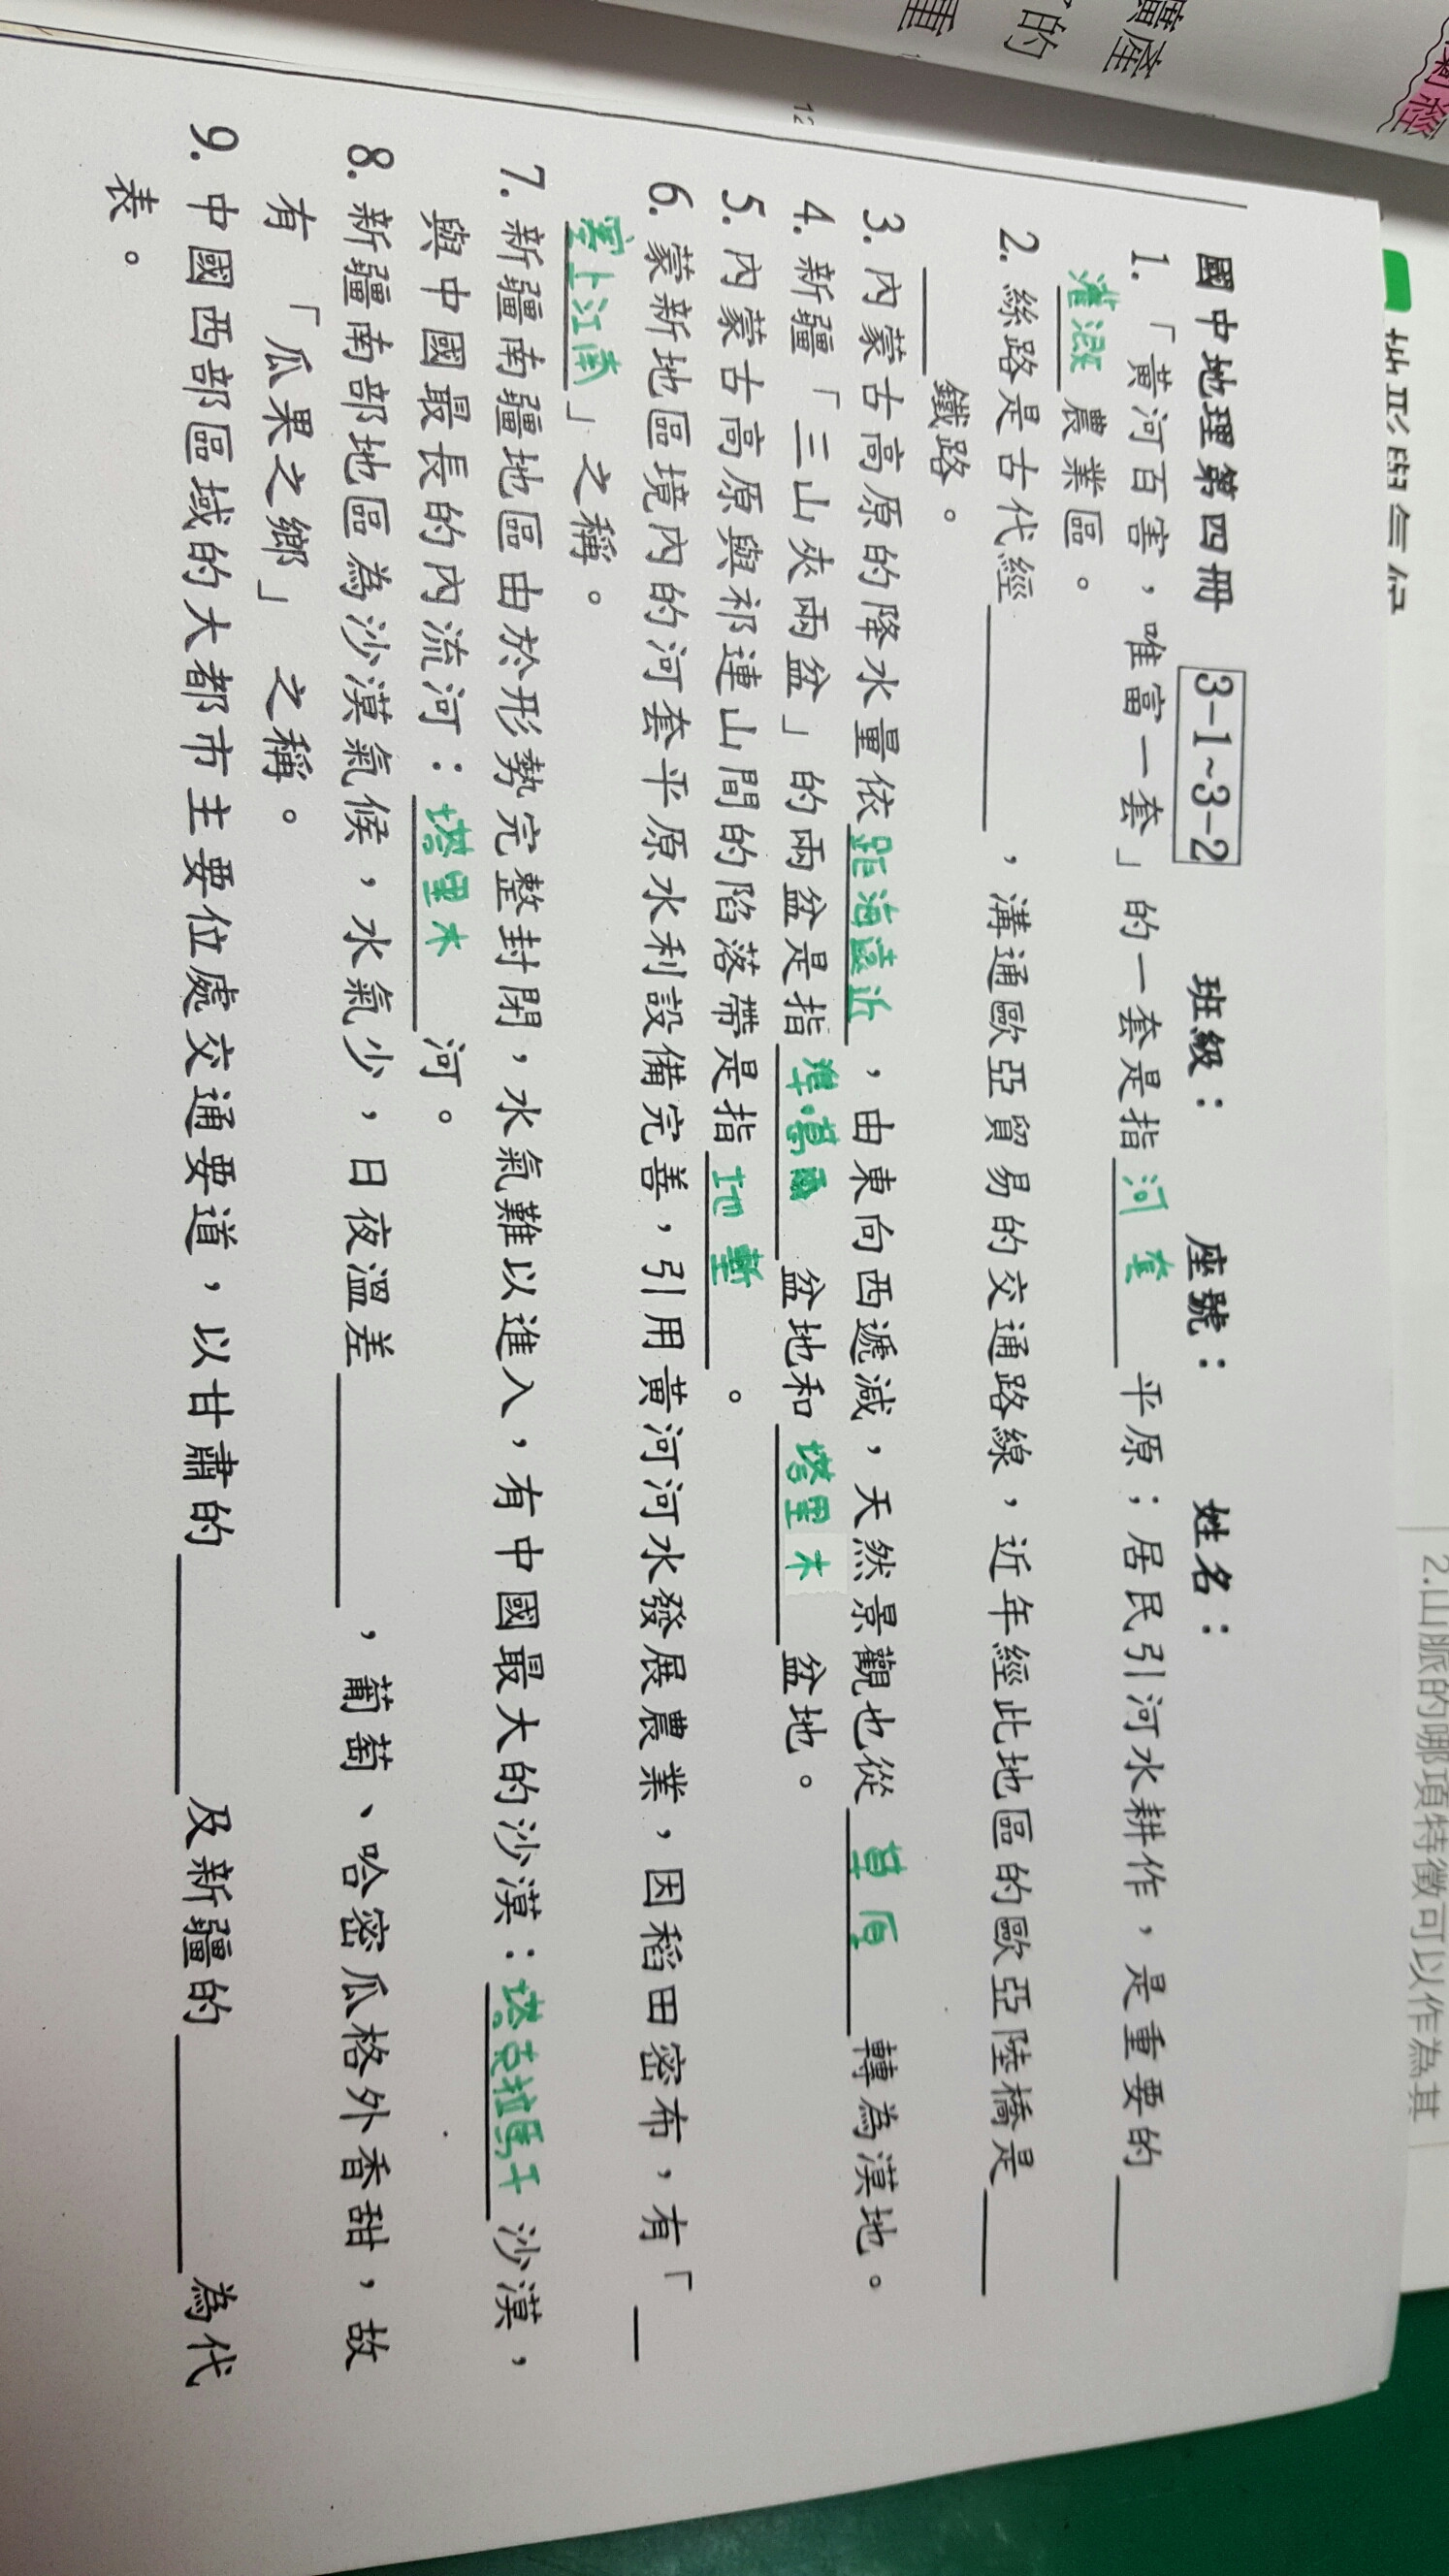 2.山脈的哪項特徵可以作為其
國中地理第四冊 3-1~3-2 班級： 座號： 姓名：
1. 「黃河百害，唯富一套」的一套是指河套平原；居民引河水耕作，是重要的
灌溉農業區。
2. 絲路是古代經____，溝通歐亞貿易的交通路線，近年經此地區的歐亞陸橋是
____鐵路。
3. 內蒙古高原的降水量依距海遠近，由東向西遞減，天然景觀也從草原轉為漠地。
4. 新疆「三山夾兩盆」的兩盆是指準噶爾盆地和塔里木盆地。
5. 內蒙古高原與祁連山間的陷落帶是指地塹。
6. 蒙新地區境內的河套平原水利設備完善，引用黃河河水發展農業，因稻田密布，有「
塞上江南」之稱。
7. 新疆南疆地區由於形勢完整封閉，水氣難以進入，有中國最大的沙漠：塔克拉馬干沙漠，
與中國最長的內流河：塔里木河。
8. 新疆南部地區為沙漠氣候，水氣少，日夜溫差____，葡萄、哈密瓜格外香甜，故
有「瓜果之鄉」之稱。
9. 中國西部區域的大都市主要位處交通要道，以甘肅的____及新疆的____為代
表。
12